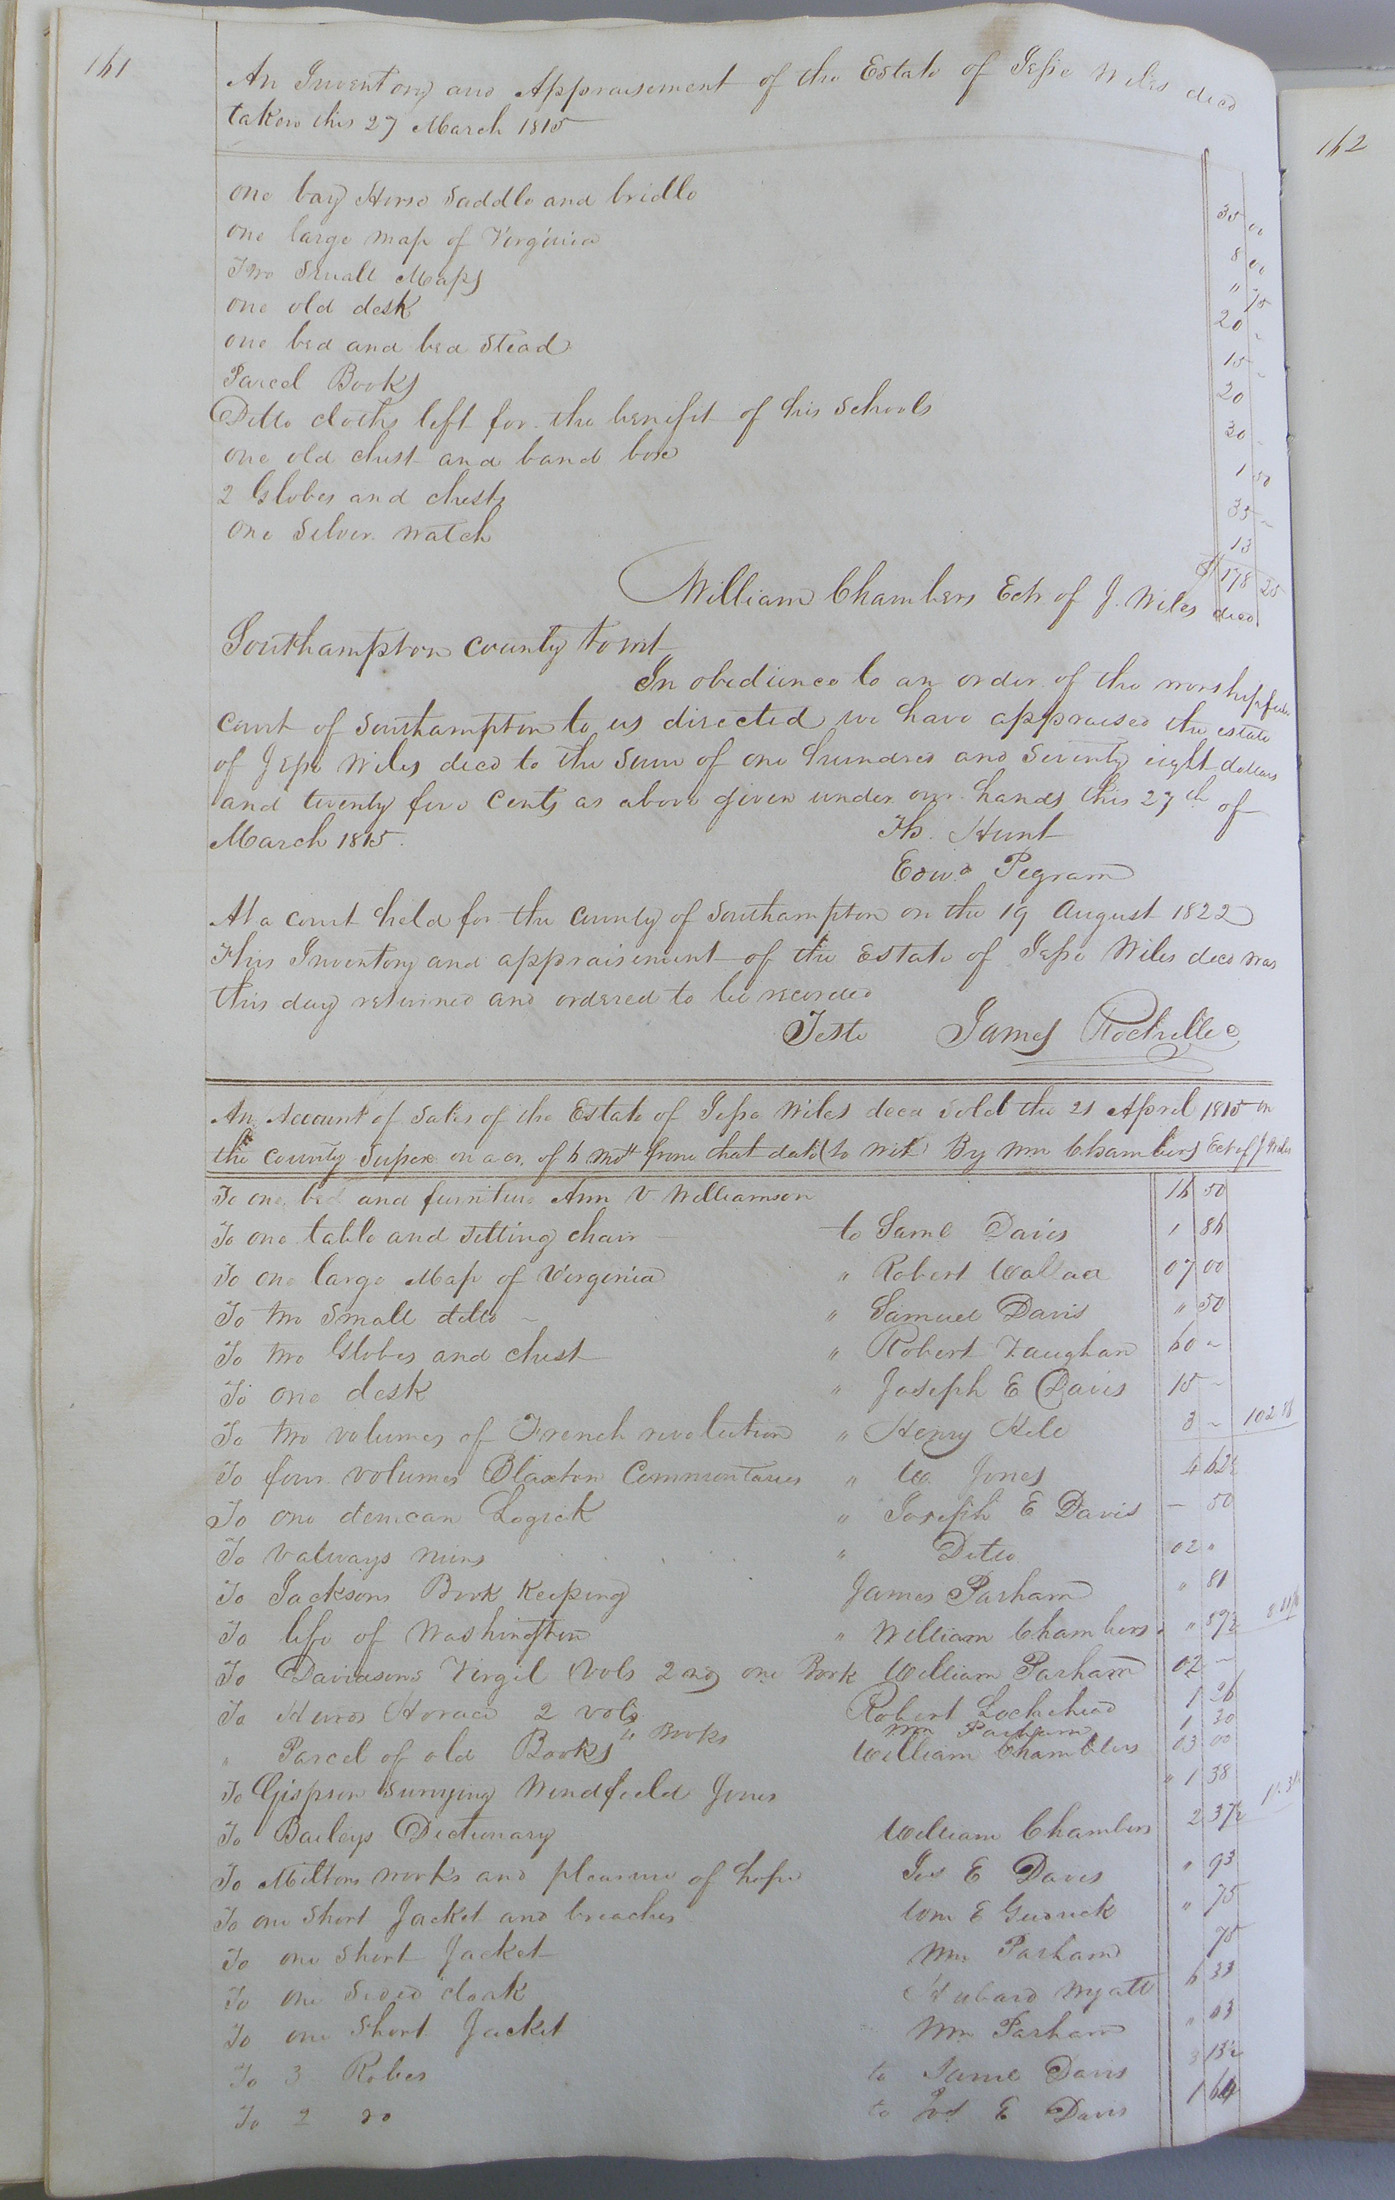 161
162
An Inventory and Appraisement of the Estate of Jesse Wiles decd
taken this 27 March 1815
one bay Horse Saddle and bridle 35 00
one large map of Virginia 8 00
Two Small Maps " 75
one old desk 20 -
one bed and bed Stead 15 -
Parcel Books 20
Ditto cloths left for the benefit of his Schools 30 -
one old chest and band box 1 50
2 Globes and chests 35 -
one Silver watch 13
$ 178 25
William Chambers Extr of J. Wiles decd
Southampton County to wit
In obedience to an order of the worshipfull
Court of Southampton to us directed we have appraised the estate
of Jesse Wiles decd to the Sum of one hundred and Seventy eight dollars
and twenty five Cents as above given under our hands this 27th of
March 1815.
Th. Hunt
Edwd Pegram
At a court held for the County of Southampton on the 19 August 1822
This Inventory and appraisement of the Estate of Jesse Wiles decd was
this day returned and ordered to be recorded
Teste James Rochelle C
An Account of Sales of the Estate of Jesse Wiles decd Sold the 21 April 1815 on
the County on a cr. of 6 Mots from that date (to wit) By Wm Chambers Extr of J Wiles
To one bed and furniture Ann V Williamson 16 50
To one table and Sitting chair to Saml Davis 1 86
To one large Map of Virginia " Robert Wallace 07 00
To two Small ditto " Samuel Davis " 50
To two Globes and chest " Robert Vaughan 60 -
To one desk " Joseph E Davis 15 -
To two volumes of French revolution " Henry Hile 3 -
To four volumes Blaxton Commentaries " W. Jones 4 62½
To one Logick " Joseph E Davis - 50
To " Ditto 02 "
To Jacksons Book Keeping James Parham " 81
To life of Washington " William Chambers " 87½
To Davidsons Virgil Vols 2 and one Book William Parham 02 -
To Horace 2 vols Robert Lochehead 1 26
" Books Wm Parham 1 30
" Parcel of old Books William Chambers 03 00
To Gispson Surveying Windfield Jones " 1 38
To Baileys Dictionary William Chambers 2 37½
To Miltons works and pleasure of hope Jos E Davis " 93
To one Short Jacket and breaches Wm E " 75
To one Short Jacket Wm Parham 75
To one cloak Hubard Wyatt 6 33
To one Short Jacket Wm Parham " 03
To 3 Robes to Saml Davis 3 13½
To 2 do to Jos E Davis 1 64